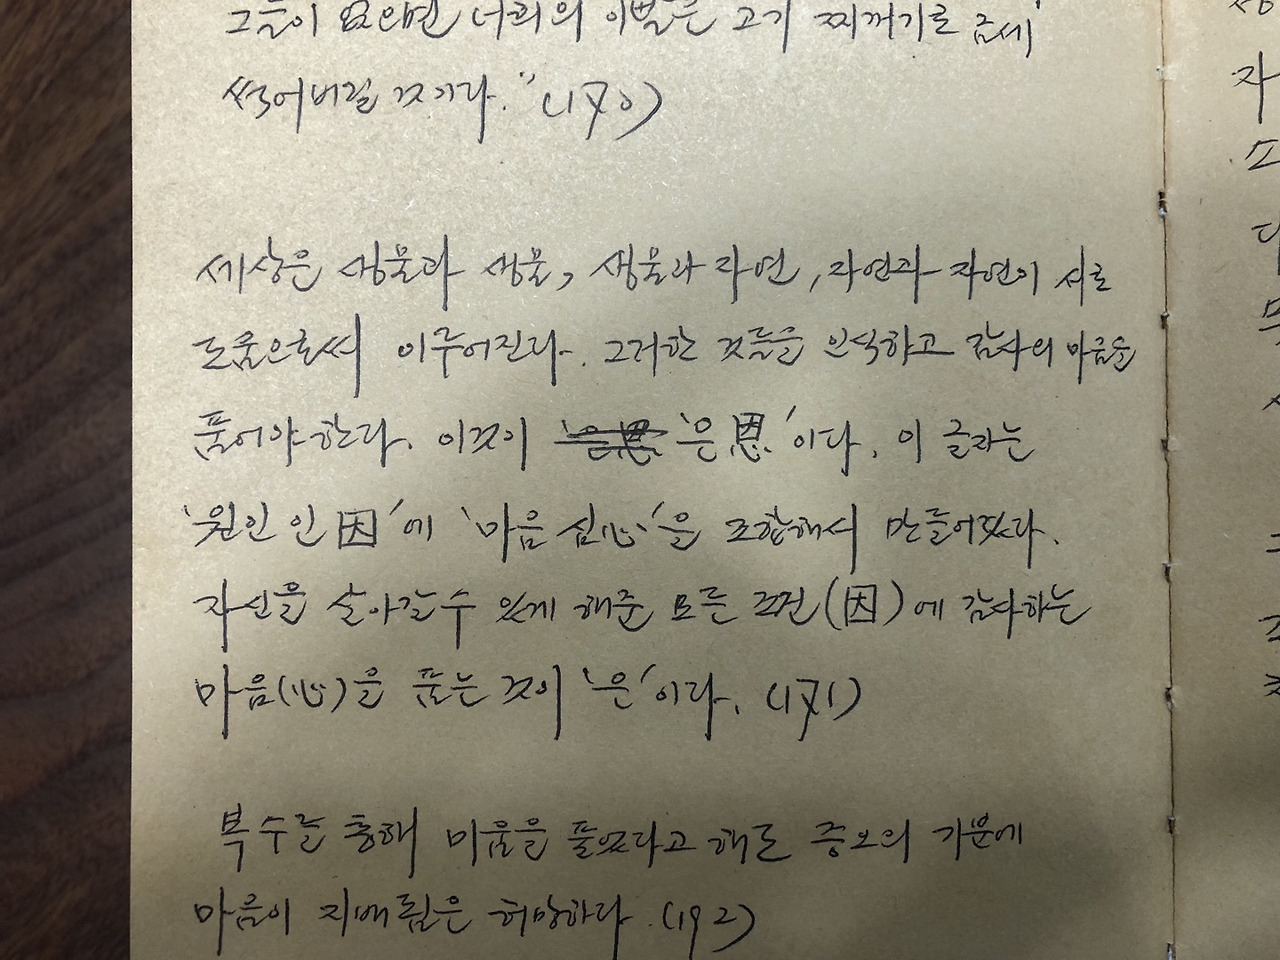 그들이 모으면 너희의 이빨은 고기 찌꺼기로 금세
썩어버릴 것이다." (170)
세상은 생물과 생물, 생물과 자연, 자연과 자연이 서로
도움으로써 이루어진다. 그러한 것들을 인식하고 감사의 마음을
품어야 한다. 이것이 '은恩' '은恩'이다. 이 글자는
'원인 인因'에 '마음 심心'을 조합해서 만들어졌다.
자신을 살아갈 수 있게 해준 모든 조건(因)에 감사하는
마음(心)을 품는 것이 '은'이다. (171)
복수를 통해 미움을 풀었다고 해도 증오의 기분에
마음이 지배됨은 허망하다. (192)